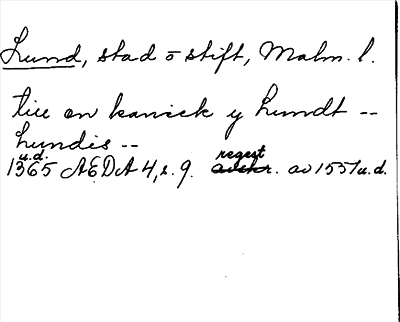 Lund, stad o stift, Malm. l.
tiil en kanick y Lundt --
Lundis --
u.d.
1365 AEDA 4, s. 9. regest avskr. av 1551 u.d.